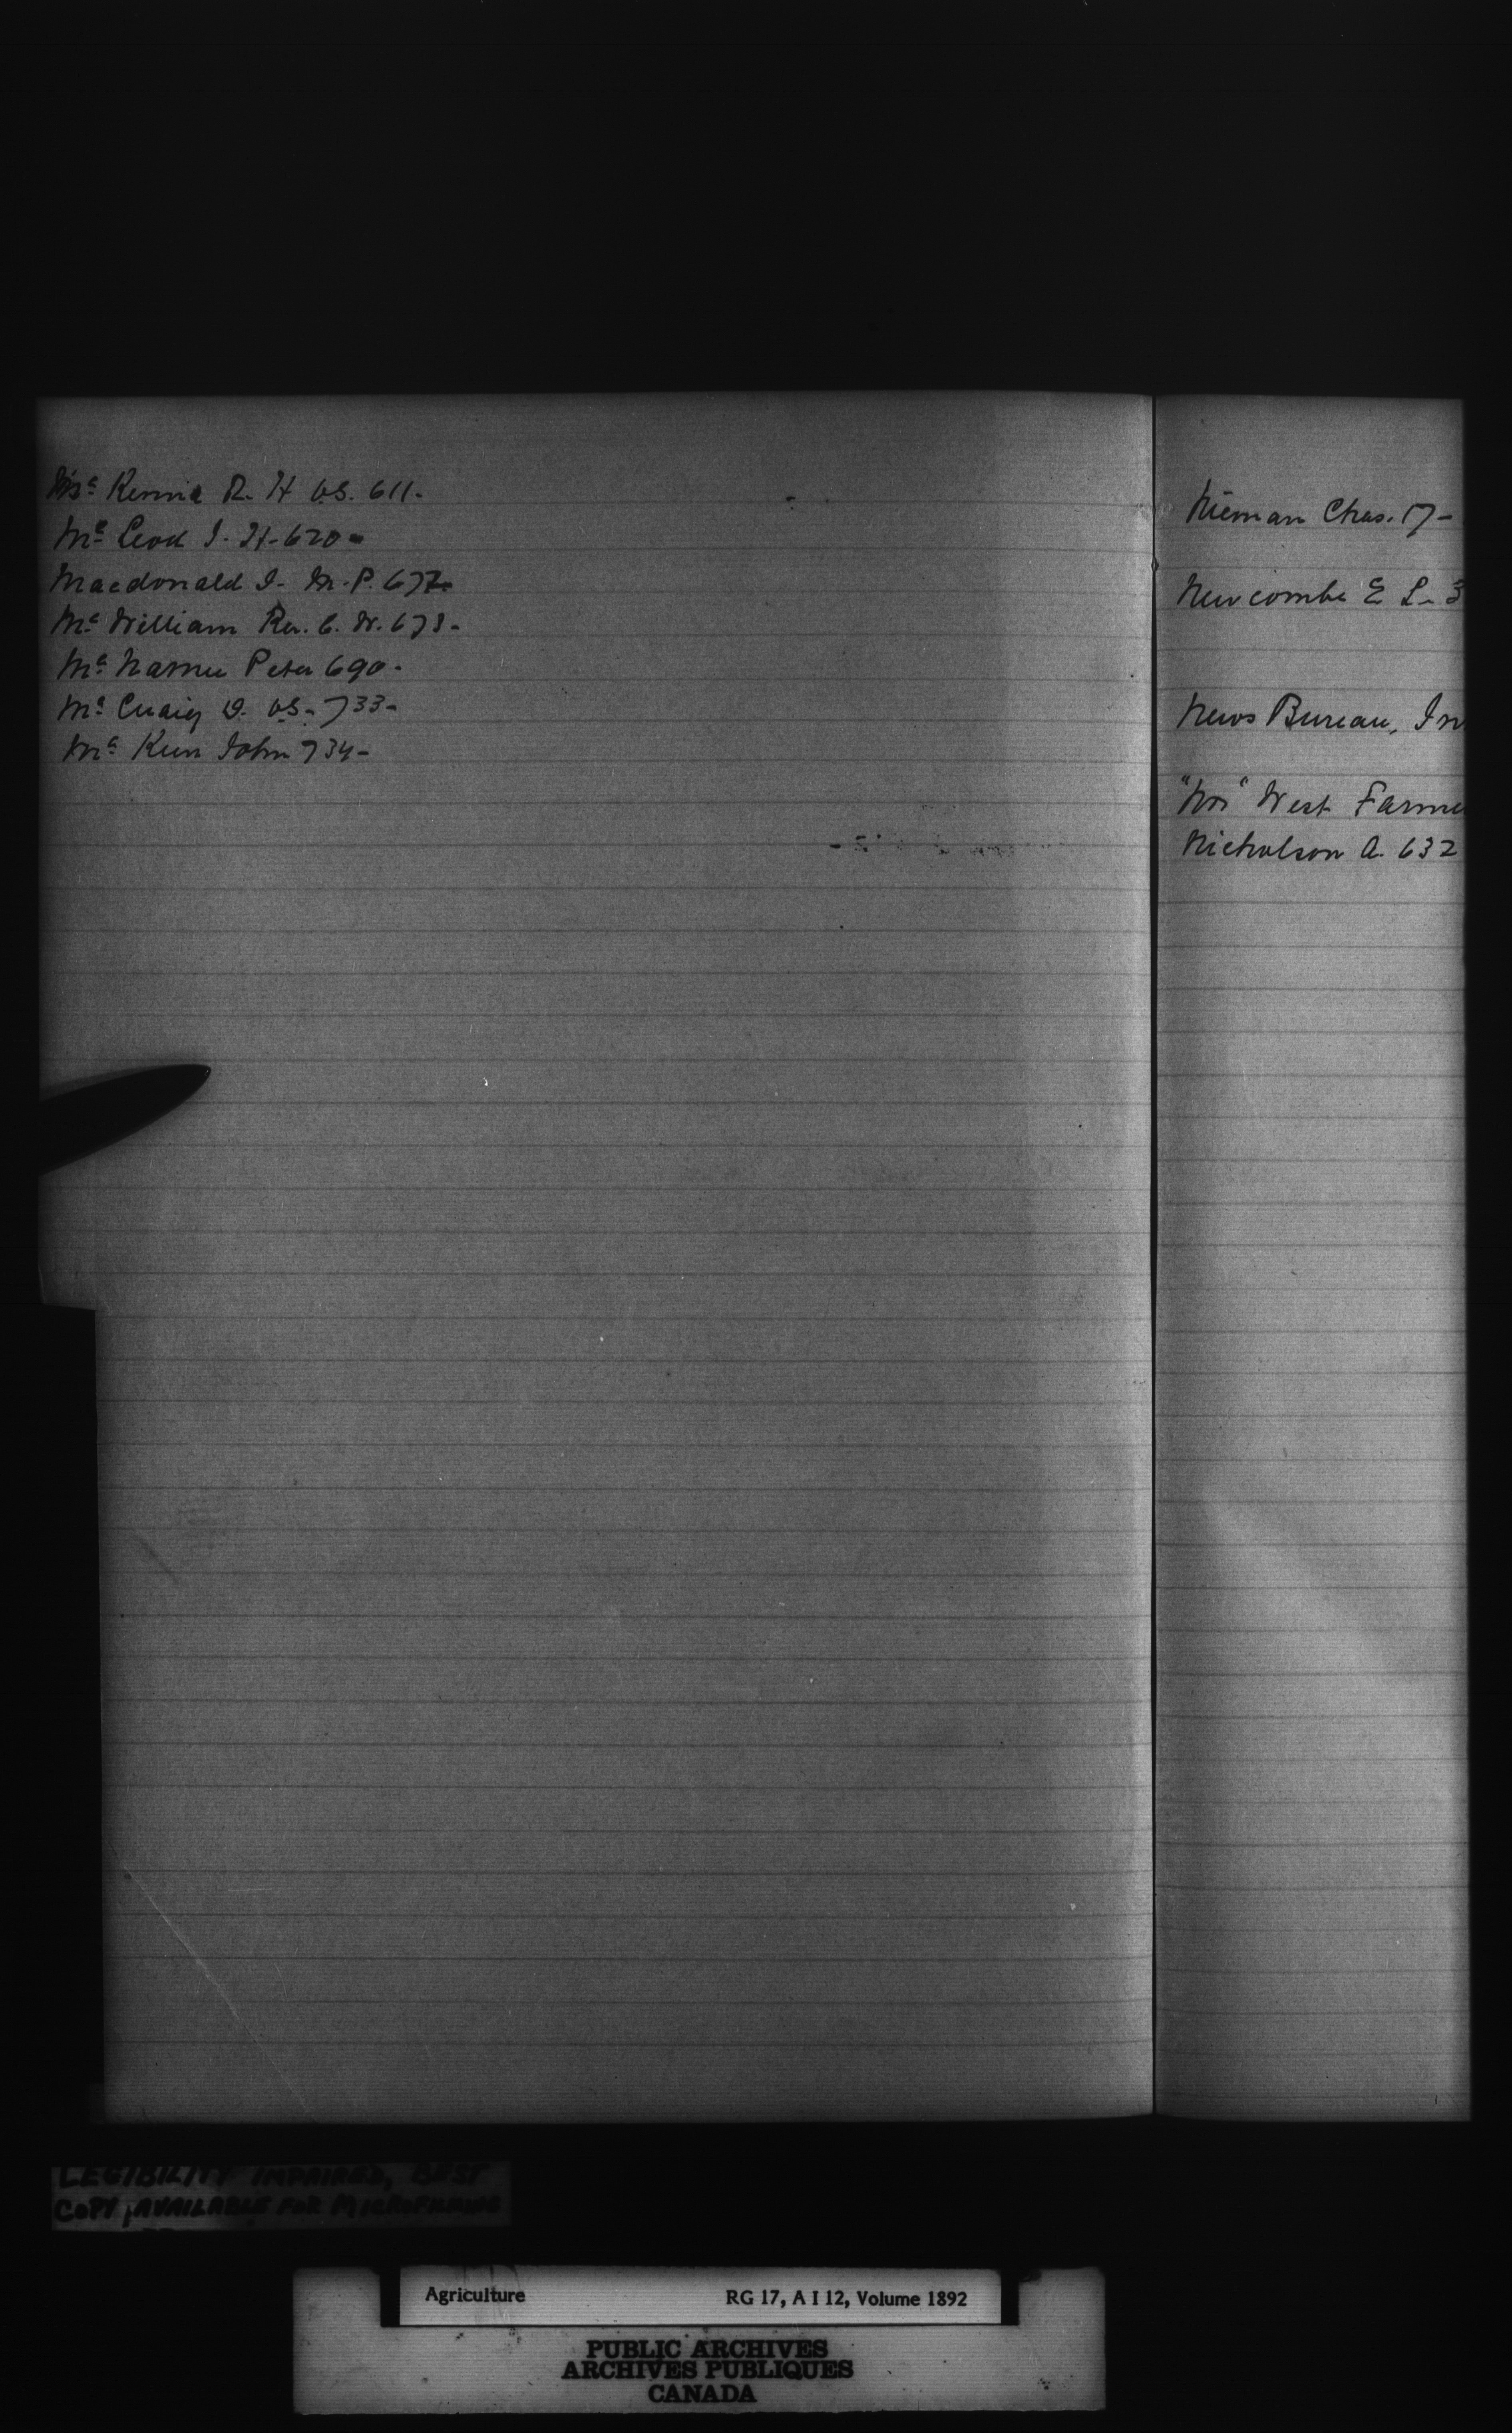 Mc Kennie R. H VS. 611-
Mc Leod J. H-620-
Macdonald J. M.P. 677-
Mc William Rev. C. W. 678-
Mc Namee Peter 690-
Mc Cuaig D. VS- 733-
Mc Keen John 734-
Nieman Chas. 17-
Newcombe E L- 3
News Bureau, In
"Nor" West Farme
Nicholson A. 632
LEGIBILITY IMPAIRED, BEST
COPY AVAILABLE FOR MICROFILMING
Agriculture RG 17, A I 12, Volume 1892
PUBLIC ARCHIVES
ARCHIVES PUBLIQUES
CANADA